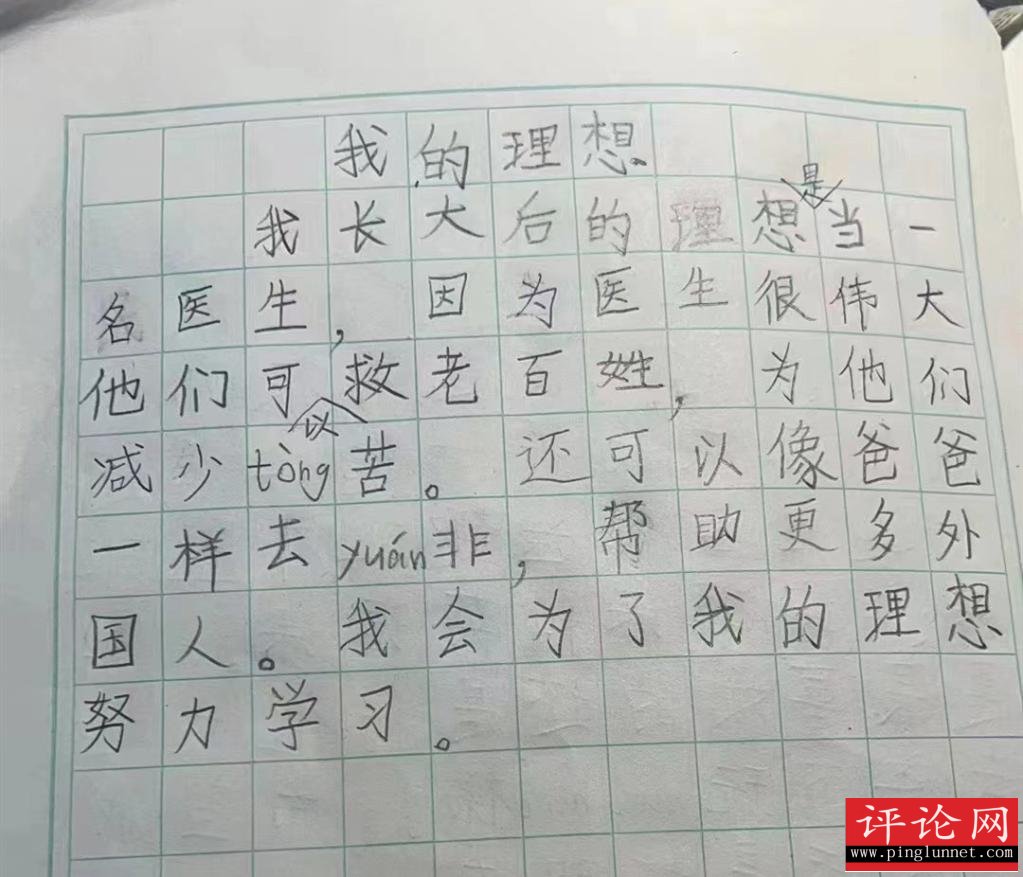 我的理想。
我长大后的理想是当一
名医生，因为医生很伟大
他们可以救老百姓，为他们
减少tòng苦。还可以像爸爸
一样去yuán非，帮助更多外
国人。我会为了我的理想
努力学习。
评论网
www.pinglunnet.com